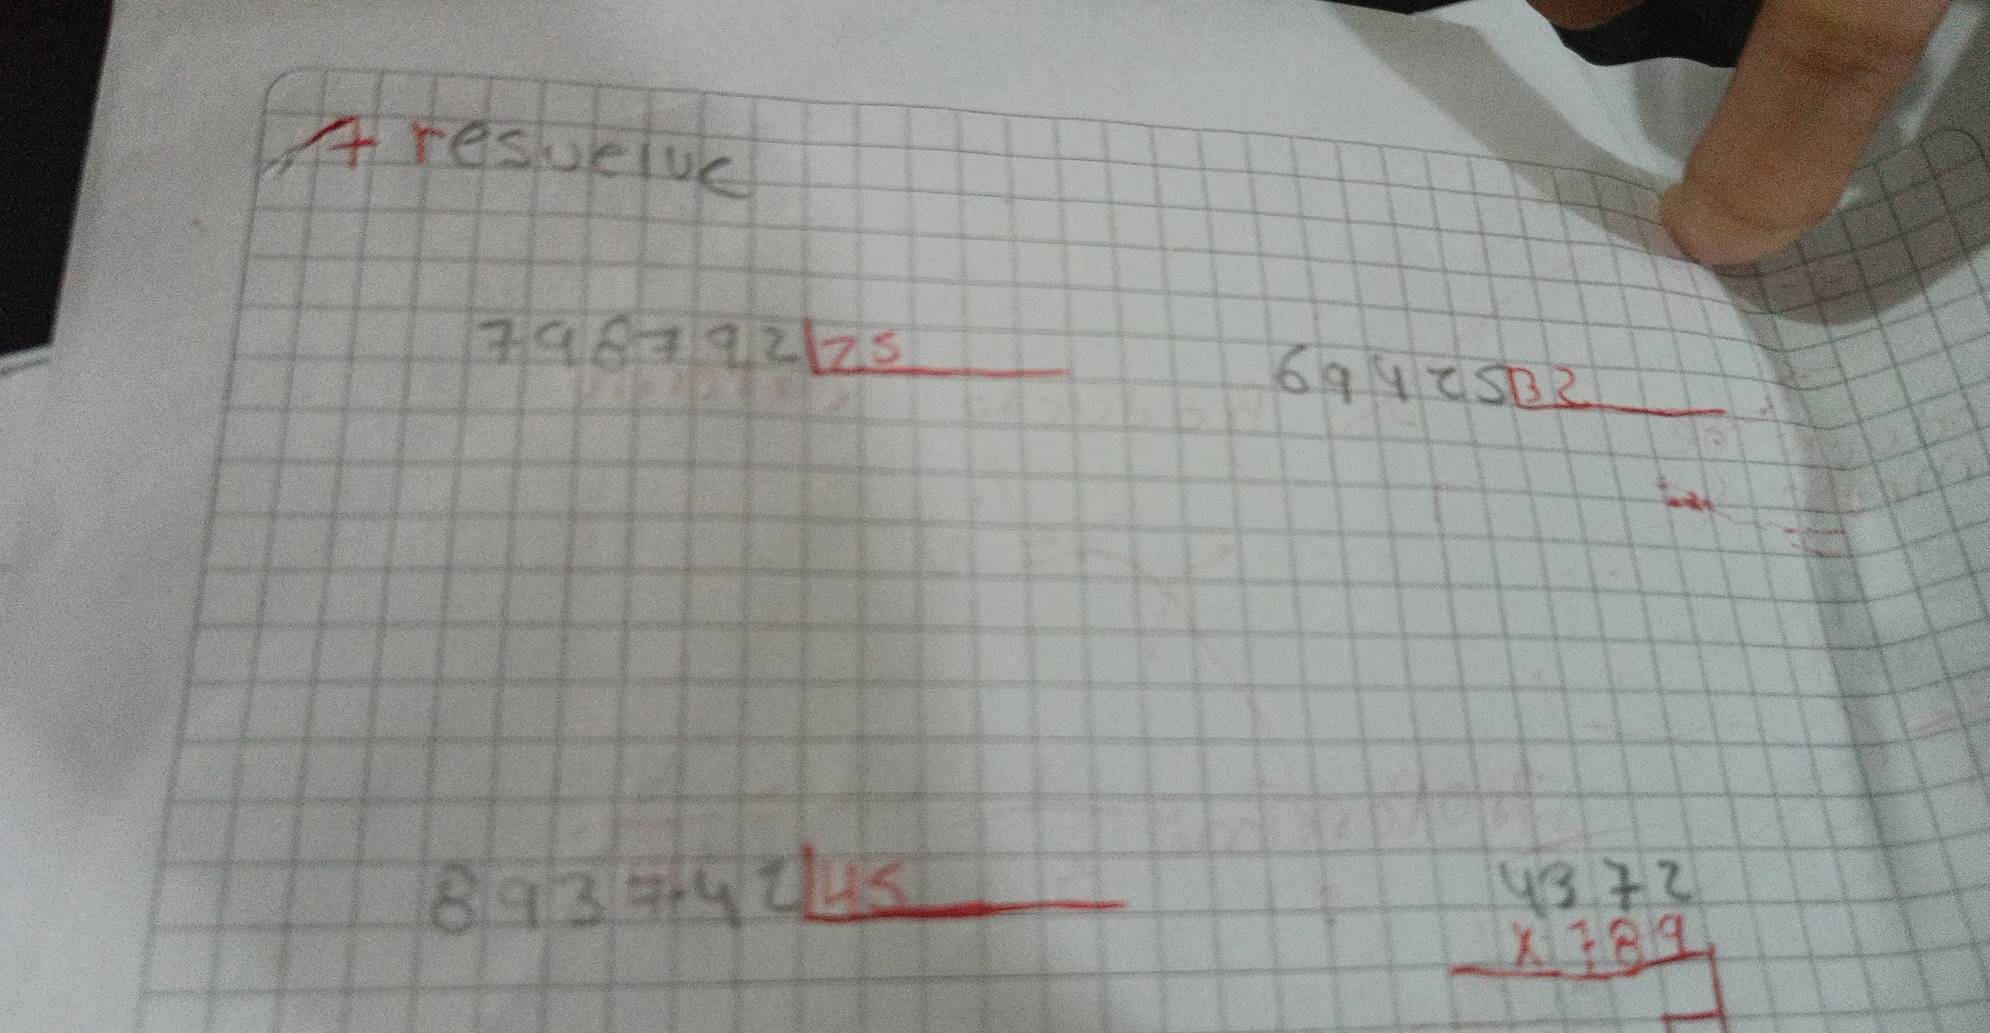 A resuelve
796792 25
69425 32
893742 45
4372
x 789